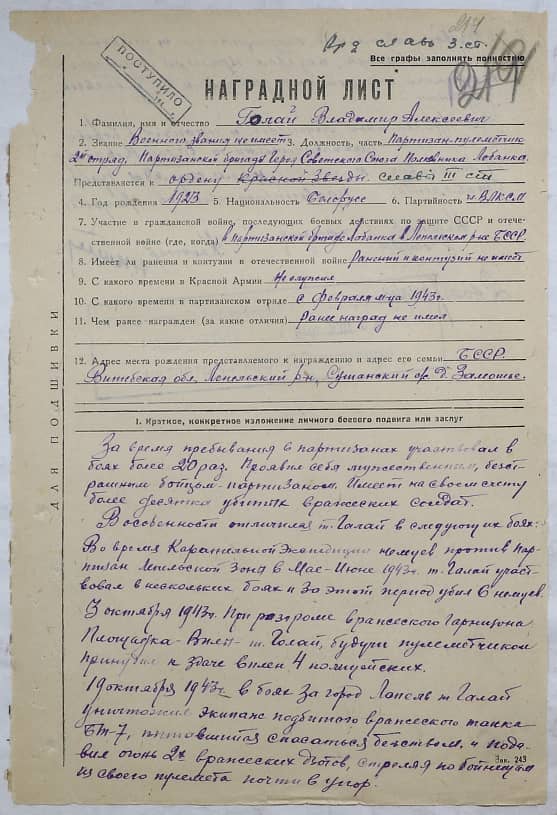 Орд славы 3. ст.
Все графы заполнять полностью
ПОСТУПИЛО
НАГРАДНОЙ ЛИСТ
1. Фамилия, имя и отчество Галай Владимир Алексеевич
2. Звание Военного звания не имеет 3. Должность, часть Партизан-пулеметчик
2й отряд, Партизанской бригады Героя Советского Союза Полковника Лобанка.
Представляется к ордену Красной Звезды. Славы III ст
4. Год рождения 1923 5. Национальность Белорусс 6. Партийность чл ВЛКСМ
7. Участие в гражданской войне, последующих боевых действиях по защите СССР и отече-
ственной войне (где, когда) в партизанской бригаде Лобанка в Лепельском р-не БССР.
8. Имеет ли ранения и контузии в отечественной войне Ранений и контузий не имеет
9. С какого времени в Красной Армии Не служил
10. С какого времени в партизанском отряде с февраля м-ца 1943г.
11. Чем ранее награжден (за какие отличия) Ранее наград не имел
12. Адрес места рождения представляемого к награждению и адрес его семьи БССР
Витебская обл, Лепельский р-н, Сушанский с/с Д. Замошье.
I. Краткое, конкретное изложение личного боевого подвига или заслуг
За время пребывания в партизанах участвовал в
боях более 20 раз. Проявил себя мужественным, бесст-
рашным бойцом-партизаном. Имеет на своем счету
более десятка убитых вражеских солдат.
В особенности отличился т. Галай в следующих боях:
Во время Карательной Экспедиции немцев против пар-
тизан Лепельской Зоны в Мае-Июне 1943г. т. Галай участ-
вовал в нескольких боях и за этот период убил 6 немцев.
3 октября 1943г. При разгроме вражеского Гарнизона
Площадка- т. Галай, будучи пулеметчиком
принудил к сдаче в плен 4 полицейских.
19 октября 1943г. в боях за город Лепель т Галай
уничтожил экипаж подбитого вражеского танка
БТ-7, пытавшийся спасаться бегством. и пода-
вил огонь 2х вражеских дзотов, стреляя по бойницам
из своего пулемета почти в упор.
Зак. 243
ДЛЯ ПОДШИВКИ